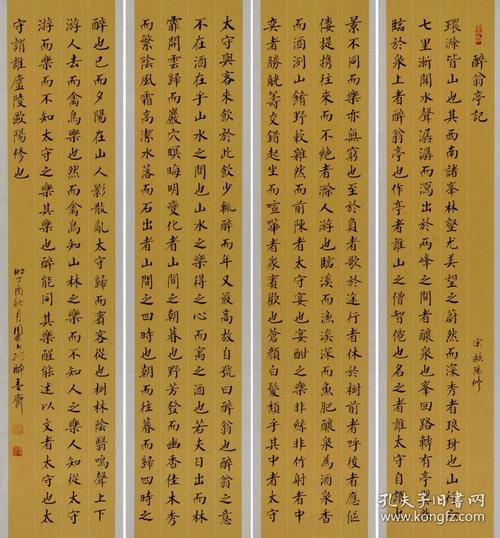 醉翁亭記
宋歐陽修
環滁皆山也其西南諸峯林壑尤美望之蔚然而深秀者琅琊也山行六
七里漸聞水聲潺潺而瀉出於兩峰之間者釀泉也峯回路轉有亭翼然
臨於泉上者醉翁亭也作亭者誰山之僧智僊也名之者誰太守自謂也
太守與客來飲於此飲少輒醉而年又最高故自號曰醉翁也醉翁之意
不在酒在乎山水之間也山水之樂得之心而寓之酒也若夫日出而林
霏開雲歸而巖穴暝晦明變化者山間之朝暮也野芳發而幽香佳木秀
而繁陰風霜高潔水落而石出者山間之四時也朝而往暮而歸四時之
景不同而樂亦無窮也至於負者歌於途行者休於樹前者呼後者應傴
僂提攜往來而不絕者滁人游也臨溪而漁溪深而魚肥釀泉為酒泉香
而酒洌山餚野蔌雜然而前陳者太守宴也宴酣之樂非絲非竹射者中
奕者勝觥籌交錯起坐而諠譁者衆賓歡也蒼顏白髮頹乎其中者太守
醉也已而夕陽在山人影散亂太守歸而賓客從也樹林陰翳鳴聲上下
游人去而禽鳥樂也然而禽鳥知山林之樂而不知人之樂人知從太守
游而樂而不知太守之樂其樂也醉能同其樂醒能述以文者太守也太
守謂誰廬陵歐陽修也
時丁酉秋月
孔夫子旧书网
www.kongfz.com